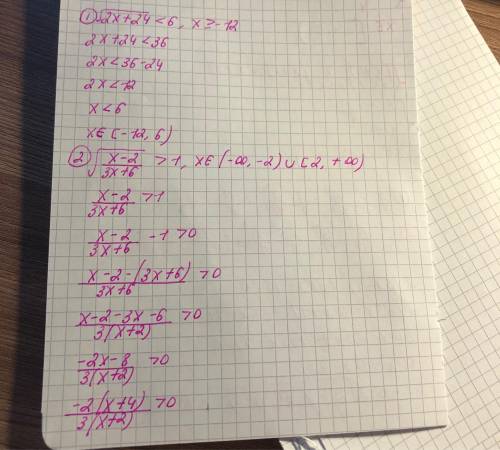 ① √2x+24 < 6, x ≥ -12
2x+24 < 36
2x < 36-24
2x < -12
x < 6
x ∈ [-12, 6)
② √(x-2)/(3x+6) > 1, x ∈ (-∞, -2) ∪ [2, +∞)
(x-2)/(3x+6) > 1
(x-2)/(3x+6) - 1 > 0
(x-2-(3x+6))/(3x+6) > 0
(x-2-3x-6)/(3(x+2)) > 0
(-2x-8)/(3(x+2)) > 0
(-2(x+4))/(3(x+2)) > 0